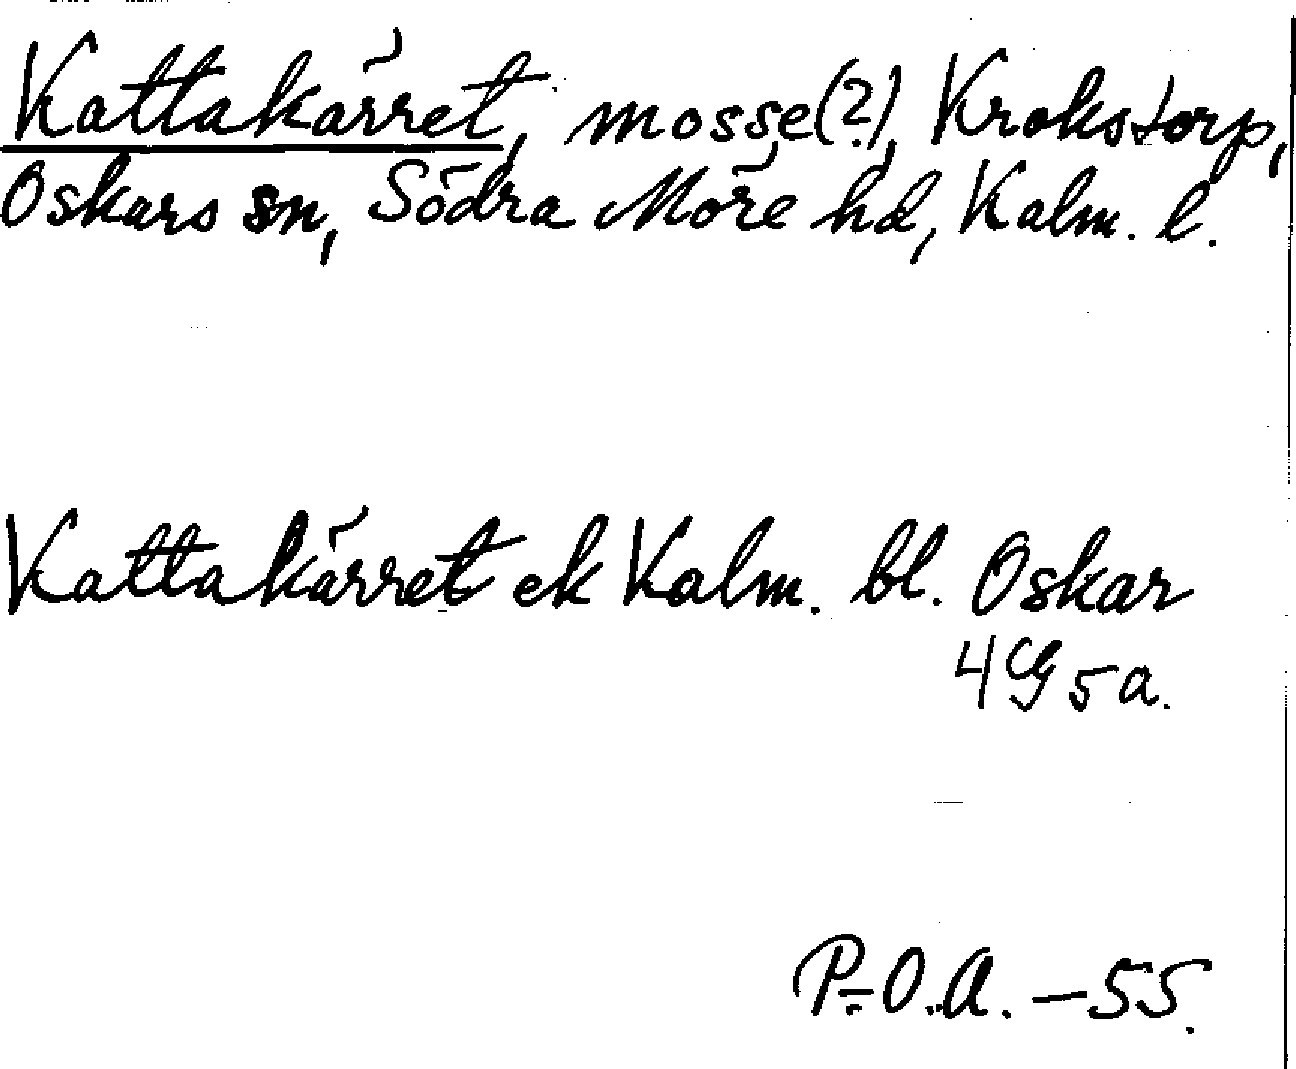 Kattakärret, mosse(?), Krokstorp,
Oskars sn, Södra Möre hd, Kalm. l.
Kattakärret ek Kalm. bl. Oskar
4G5a.
P.-O.A. -55.